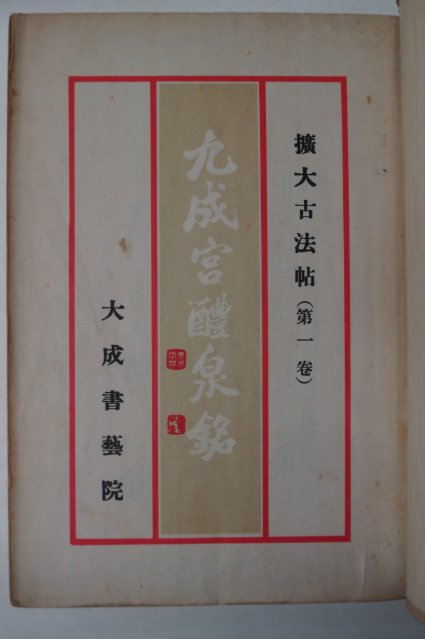 擴大古法帖(第一卷)
九成宮醴泉銘
大成書藝院